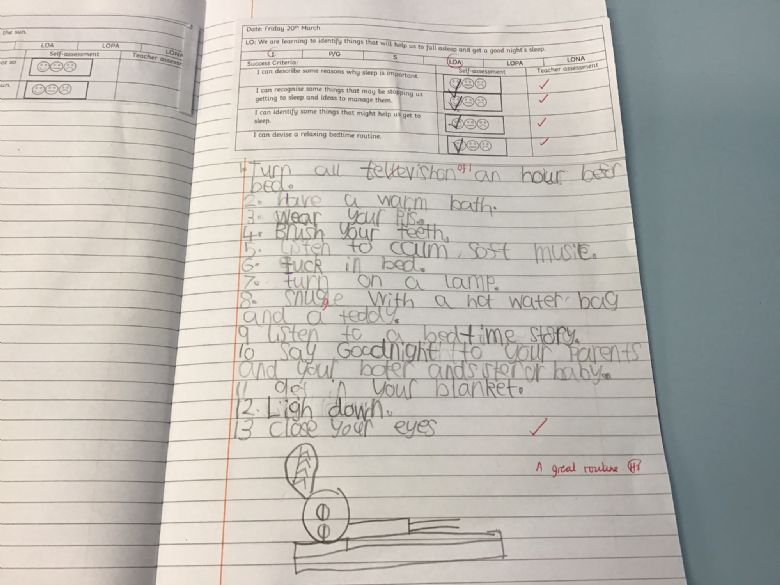 the sun.
LOA
LOPA
LONA
Self-assessment
Teacher assessm
or so
un.
Date: Friday 20th March
LO: We are learning to identify things that will help us to fall asleep and get a good night's sleep.
I P/G S LOA LOPA LONA
Success Criteria: Self-assessment Teacher assessment
I can describe some reasons why sleep is important.
I can recognise some things that may be stopping us
getting to sleep and ideas to manage them.
I can identify some things that might help us get to
sleep.
I can devise a relaxing bedtime routine.
1. Turn all tellevision off an hour befor
bed.
2. Have a warm bath.
3. Wear your PJs.
4. Brush your teeth.
5. Listen to calm soft music.
6. tuck in bed.
7. turn on a lamp.
8. snugle with a hot water bag
and a teddy.
9 Listen to a bedtime story.
10 Say Goodnight to your parents
and your boter and sister or baby.
11 get in your blanket.
12. Ligh down.
13 Close your eyes
A great routine